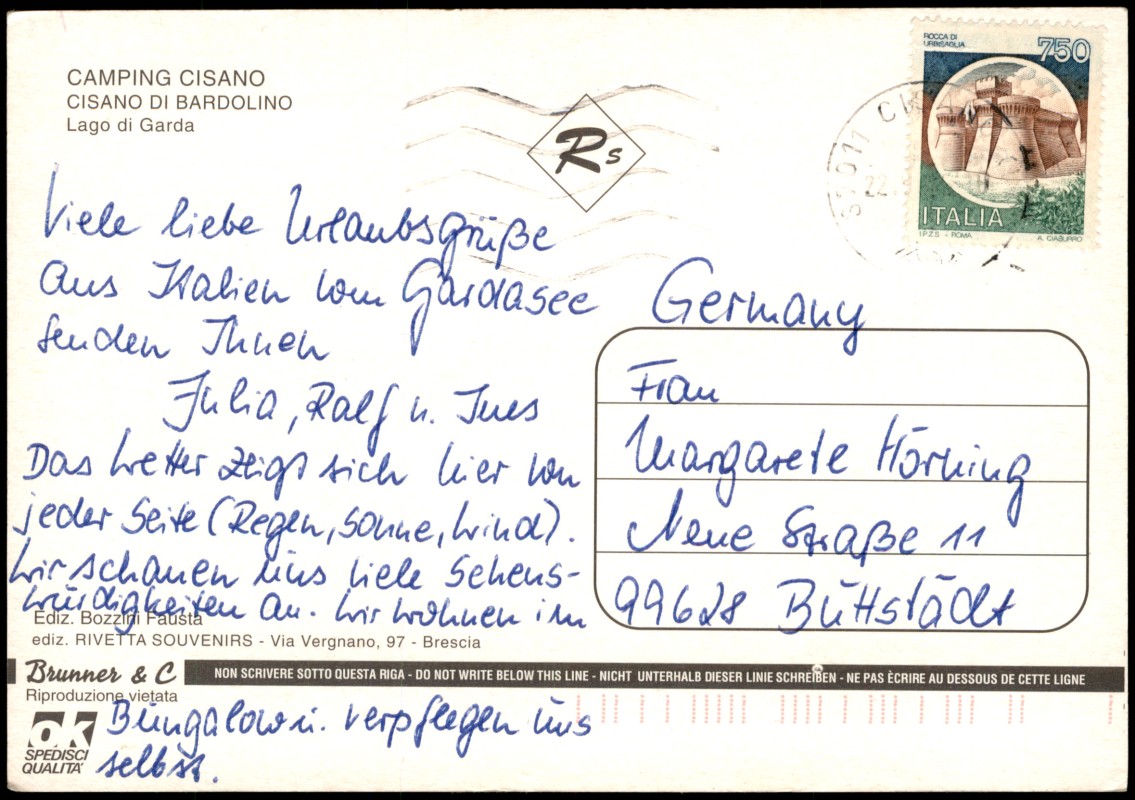 CAMPING CISANO
CISANO DI BARDOLINO
Lago di Garda
Rs
ROCCA DI
URBISAGLIA
750
ITALIA
I.P.Z.S. - ROMA
A. CIABURRO
Viele liebe Urlaubsgrüße
aus Italien vom Gardasee
senden Ihnen
Julia, Ralf u. Ines
Das Wetter zeigt sich hier von
jeder Seite (Regen, Sonne, Wind).
Wir schauen uns viele Sehens-
würdigkeiten an. Wir wohnen im
Bungalow u. verpflegen uns
selbst.
Germany
Frau
Margarete Hörning
Neue Straße 11
99628 Buttstädt
Ediz. Bozzini Fausta
ediz. RIVETTA SOUVENIRS - Via Vergnano, 97 - Brescia
Brunner & C
NON SCRIVERE SOTTO QUESTA RIGA - DO NOT WRITE BELOW THIS LINE - NICHT UNTERHALB DIESER LINIE SCHREIBEN - NE PAS ÈCRIRE AU DESSOUS DE CETTE LIGNE
Riproduzione vietata
OK
SPEDISCI
QUALITA'